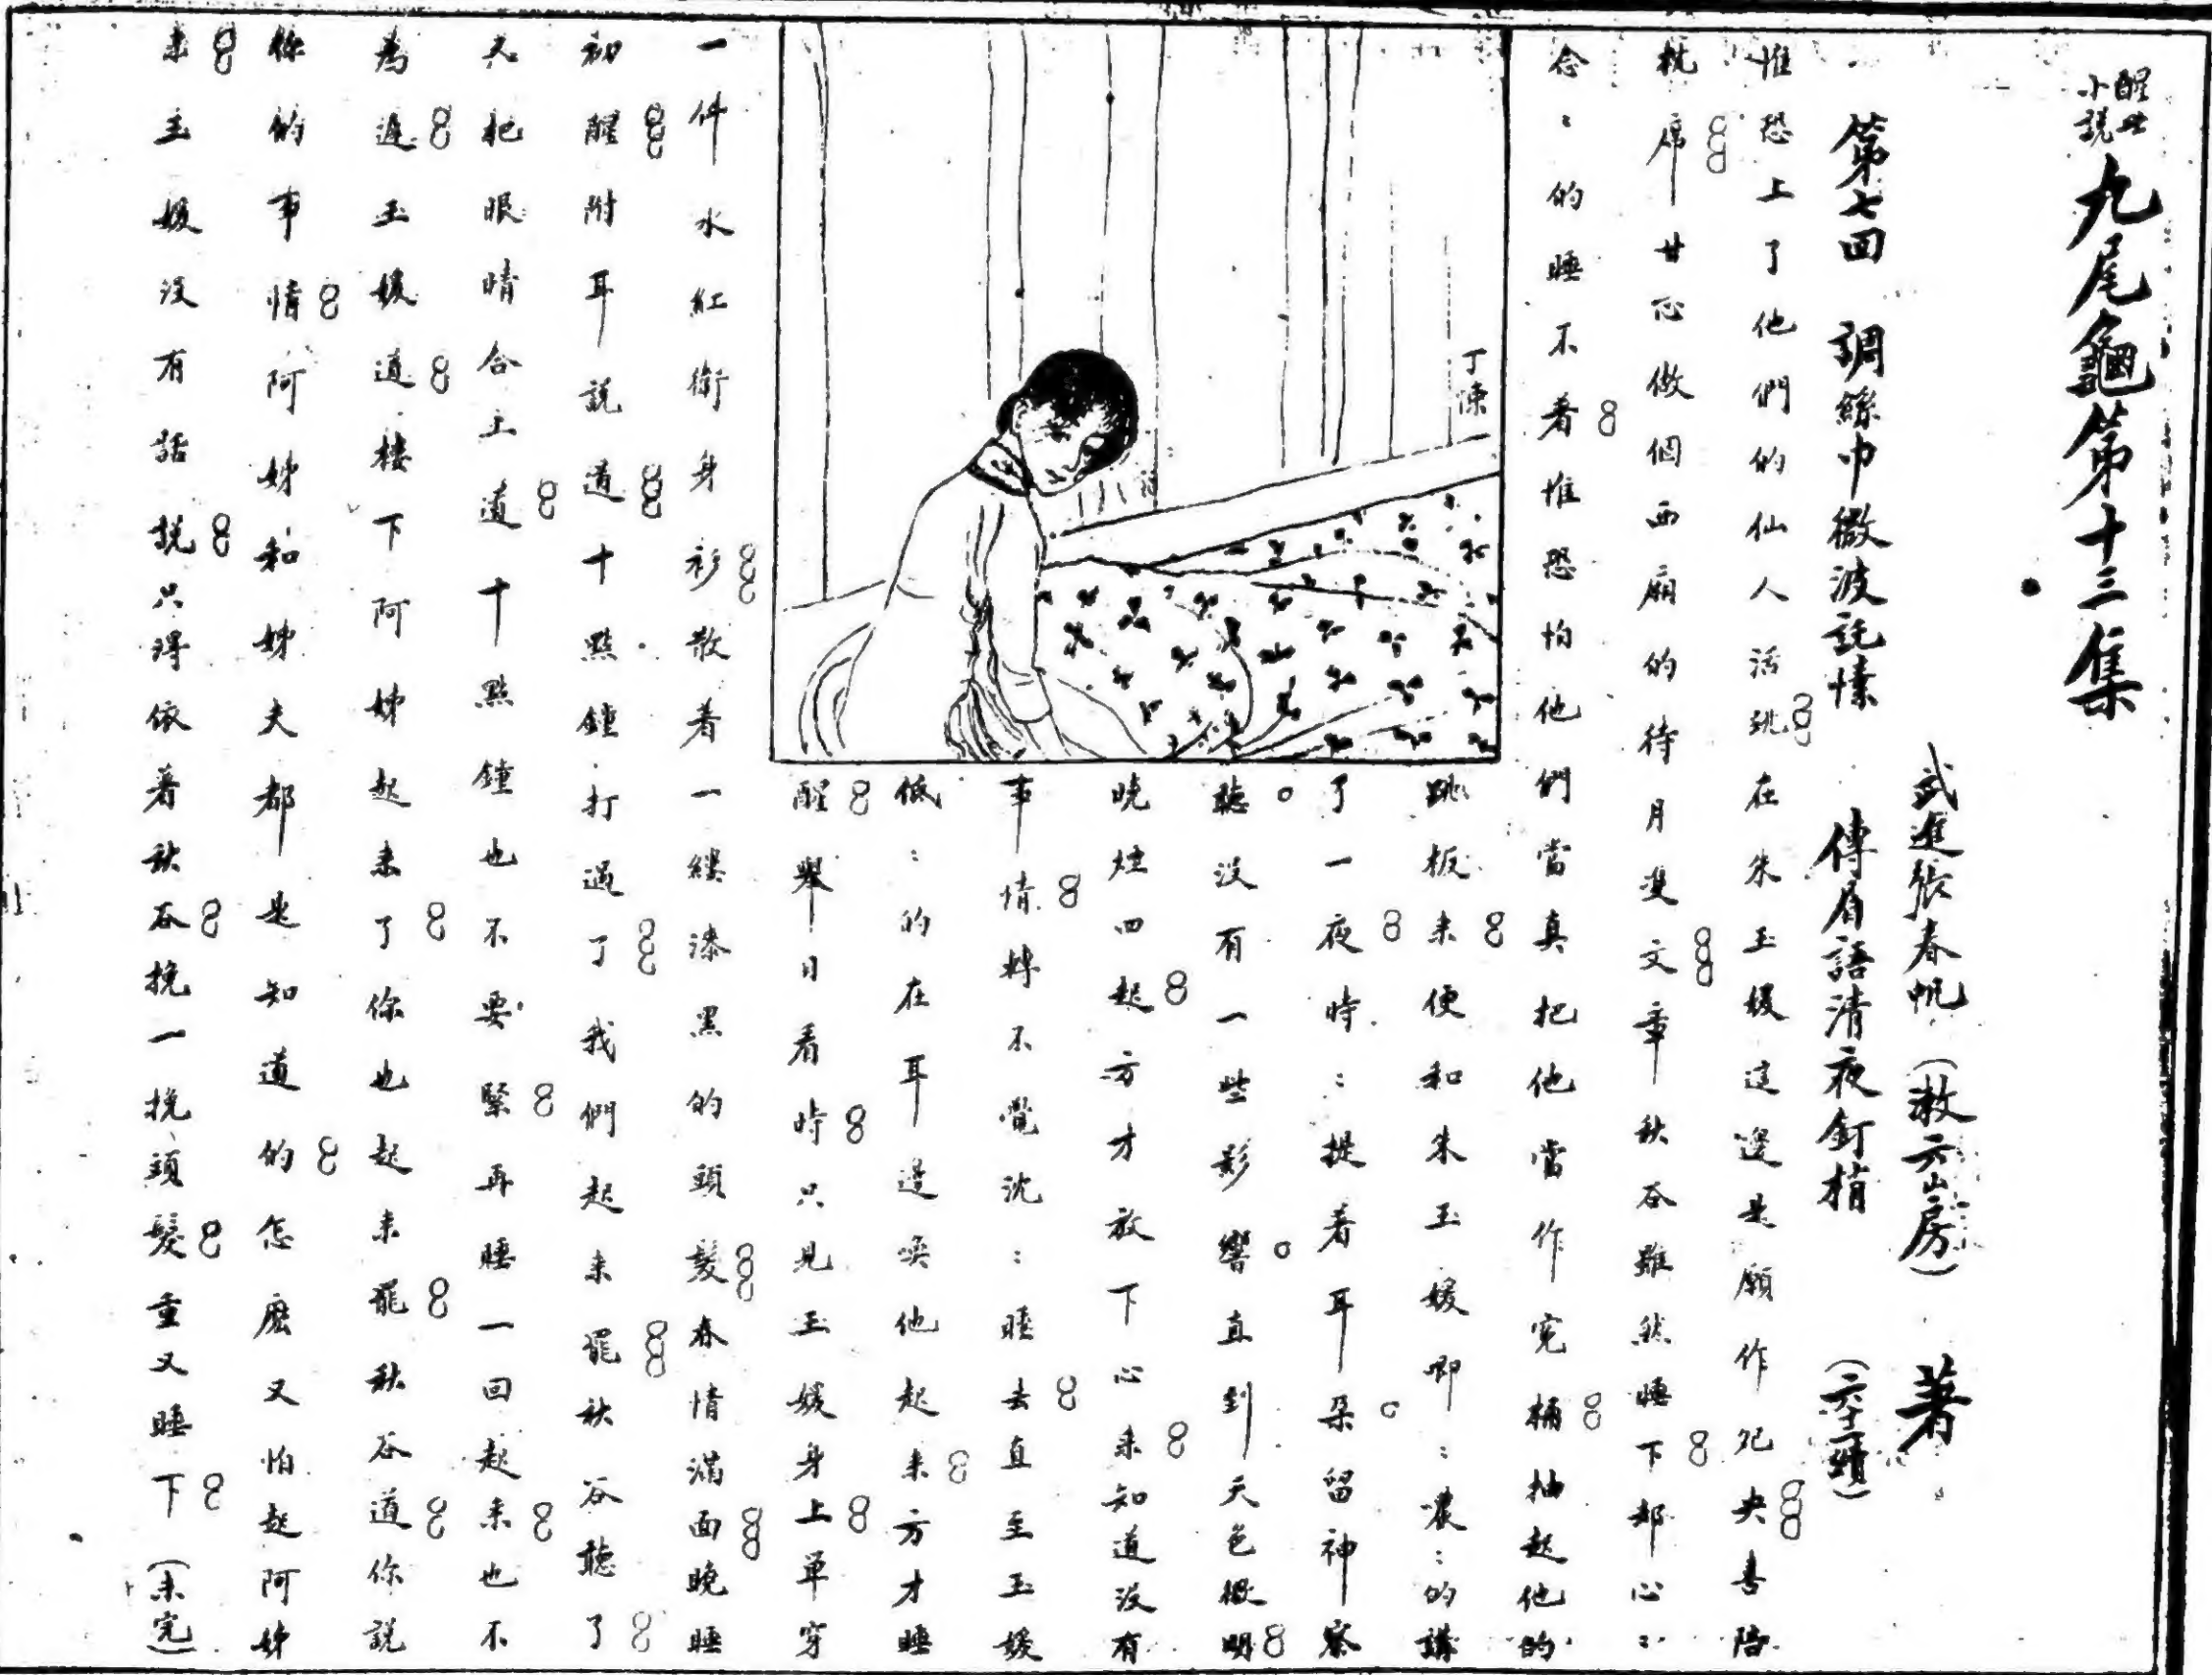 醒世小説 九尾龜第十三集
武進張春帆（漱六山房） 著
第七回 調絲巾微波託愫 傳眉語清夜釘梢 （六十一續）
惟恐上了他們的仙人活跳在朱玉媛這邊是願作鴛央善陪
枕席甘心做個西廂的待月雙文章秋谷雖然睡下却心：
念：的睡不着惟恐怕他們當真把他當作寃桶抽起他的
跳板来便和朱玉媛唧：濃：的講
了一夜時：提着耳朵留神察
聽没有一些影響直到天色微明
曉烟四起方才放下心来知道没有
事情轉不覺沈：睡去直至玉媛
低：的在耳邊喚他起来方才睡
醒舉目看時只見玉媛身上單穿
一件水紅衛身衫散着一縷漆黑的頭髮春情滿面晚睡
初醒附耳説道十點鐘打過了我們起来罷秋谷聽了
又把眼晴合上道十點鐘也不要緊再睡一回起来也不
為遲玉媛道樓下阿姊起来了你也起来罷秋谷道你説
你的事情阿姊和姊夫都是知道的怎麽又怕起阿姊
来玉媛没有話説只得依着秋谷挽一挽頭髮重又睡下（未完）
丁悚